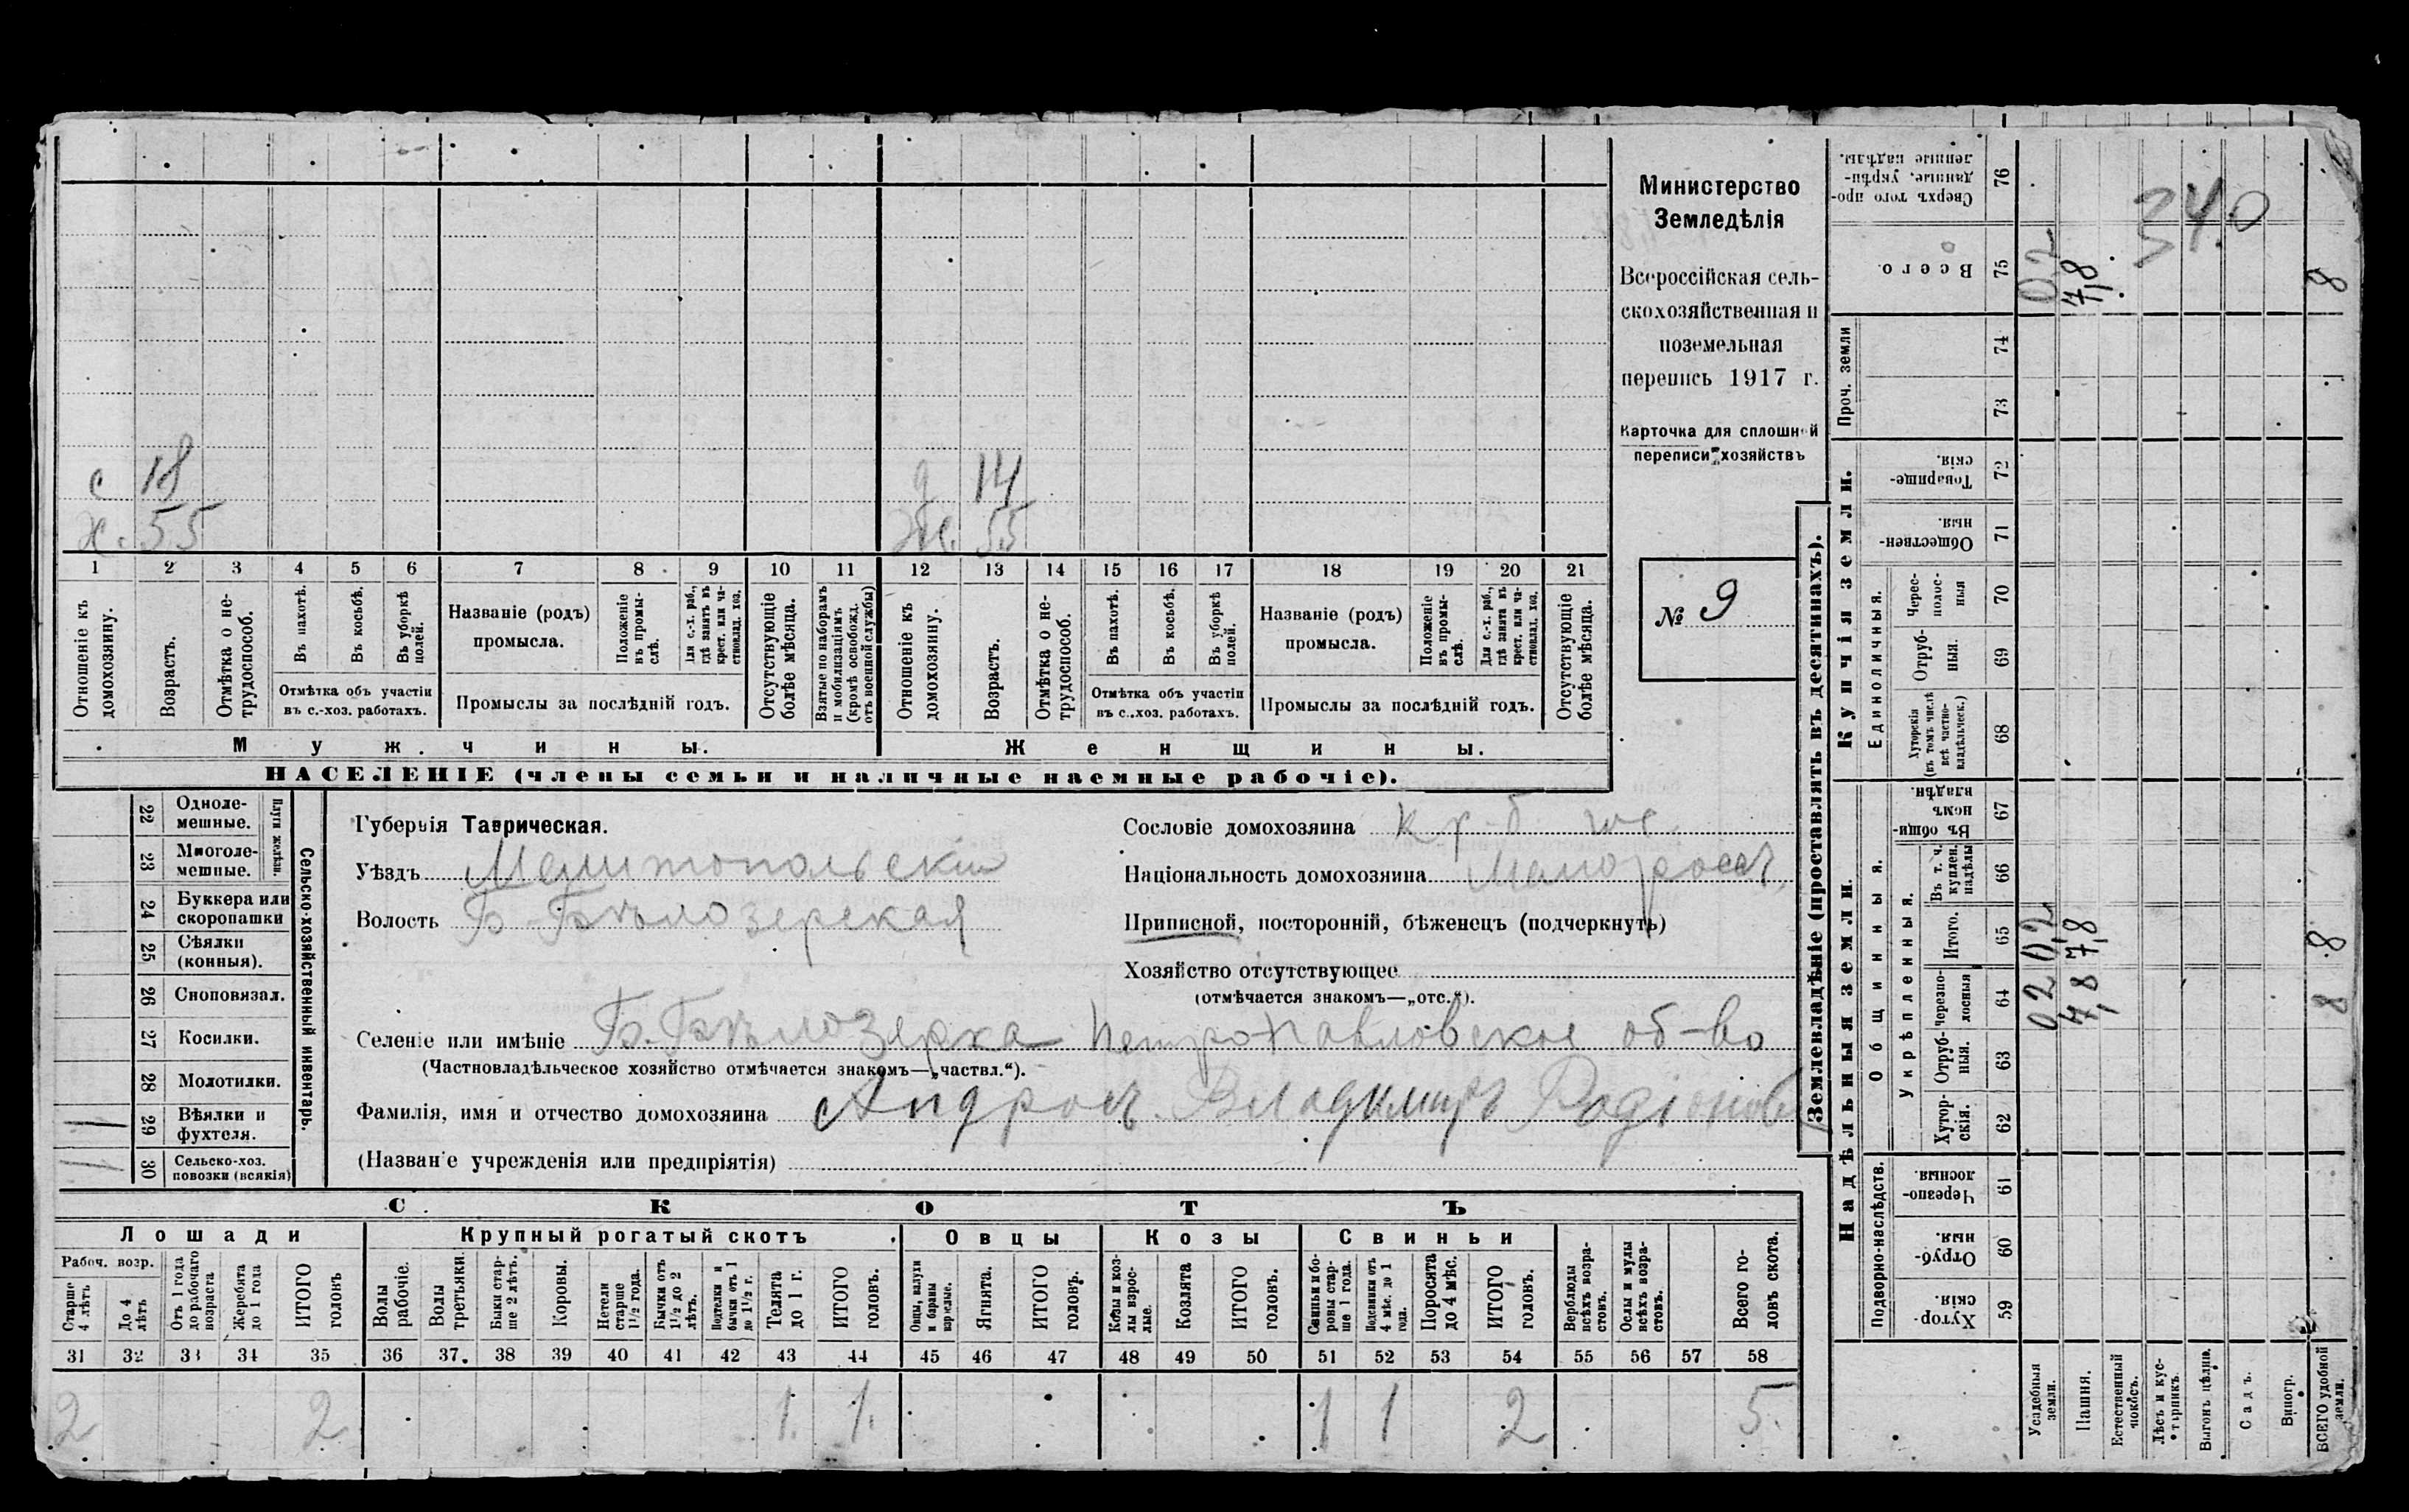 с 18
х. 55
д 14
Ж. 55
1 2 3 4 5 6 7 8 9 10 11 12 13 14 15 16 17 18 19 20 21
Отношеніе къ домохозяину.
Возрастъ.
Отмѣтка о нетрудоспособ.
Въ пахотѣ.
Въ косьбѣ.
Въ уборкѣ полей.
Отмѣтка объ участіи
въ с.-хоз. работахъ.
Названіе (родъ)
промысла.
Положеніе въ промыслѣ.
Для с.-х. раб., гдѣ занятъ въ крест. или частновлад. хоз.
Промыслы за послѣдній годъ.
Отсутствующіе болѣе мѣсяца.
Взятые по наборамъ и мобилизаціямъ (кромѣ освобожд. отъ военной службы)
Отношеніе къ домохозяину.
Возрастъ.
Отмѣтка о нетрудоспособ.
Въ пахотѣ.
Въ косьбѣ.
Въ уборкѣ полей.
Отмѣтка объ участіи
въ с.-хоз. работахъ.
Названіе (родъ)
промысла.
Положеніе въ промыслѣ.
Для с.-х. раб., гдѣ занята въ крест. или частновлад. хоз.
Промыслы за послѣдній годъ.
Отсутствующіе болѣе мѣсяца.
Мужчины.
Женщины.
НАСЕЛЕНІЕ (члены семьи и наличные наемные рабочіе).
Министерство
Земледѣлія
Всероссійская сель-
скохозяйственная и
поземельная
перепись 1917 г.
Карточка для сплошной
переписи хозяйствъ
№ 9
22 Одноле-
мешные.
23 Многоле-
мешные.
Плуги желѣзн.
24 Буккера или
скоропашки
25 Сѣялки
(конныя).
26 Сноповязал.
27 Косилки.
28 Молотилки.
1 29 Вѣялки и
фухтеля.
1 30 Сельско-хоз.
повозки (всякія)
Сельско-хозяйственный инвентарь.
Губернія Таврическая.
Уѣздъ Мелитопольскій
Волость Б-Бѣлозерская
Сословіе домохозяина
Національность домохозяина Малоросс.
Приписной, посторонній, бѣженецъ (подчеркнуть)
Хозяйство отсутствующее
(отмѣчается знакомъ—„отс.“).
Селеніе или имѣніе Б. Бѣлозерка Петропавловское об-во
(Частновладѣльческое хозяйство отмѣчается знакомъ—„частвл.“).
Фамилія, имя и отчество домохозяина Андрос. Владимиръ Родіонов
(Названіе учрежденія или предпріятія)
СКОТЪ
Лошади
Крупный рогатый скотъ
Овцы
Козы
Свиньи
Рабоч. возр.
Старше 4 лѣтъ
До 4 лѣтъ
Отъ 1 года до рабочаго возраста
Жеребята до 1 года
ИТОГО головъ
Волы рабочіе.
Волы третьяки.
Быки старше 2 лѣтъ.
Коровы.
Нетели старше 1½ года.
Бычки отъ 1½ до 2 лѣтъ.
Подтелки и бычки отъ 1 до 1½ г.
Телята до 1 г.
ИТОГО головъ.
Овцы, валухи и бараны взрослые.
Ягнята.
ИТОГО головъ.
Козы и козлы взрослые.
Козлята
ИТОГО головъ.
Свиньи и боровы старше 1 года.
Подсвинки отъ 4 мѣс. до 1 года.
Поросята до 4 мѣс.
ИТОГО головъ.
Верблюды всѣхъ возрастовъ.
Ослы и мулы всѣхъ возрастовъ.
Всего головъ скота.
31 32 33 34 35 36 37 38 39 40 41 42 43 44 45 46 47 48 49 50 51 52 53 54 55 56 57 58
2 2 1. 1. 1 1 2 5.
Землевладѣніе (проставлять въ десятинахъ).
Купчія земли.
Надѣльныя земли.
Проч. земли
Единоличныя.
Общинныя.
Укрѣпленныя.
Подворно-наслѣдств.
76 Сверхъ того проданные, укрѣпленные надѣлы.
75 Всего. 0,2 7,8 8
34.0
74
73
72 Товарищескія.
71 Общественныя.
70 Чересполосныя
69 Отрубныя.
68 Хуторскія (въ томъ числѣ всѣ частновладѣльческ.)
67 Въ общинномъ владѣн.
66 Въ т. ч. куплен. надѣлы
65 Итого. 0,2 7,8 8
64 Черезполосныя 02 7,8 8
63 Отрубныя.
62 Хуторскія.
61 Черезполосныя
60 Отрубныя.
59 Хуторскія.
Усадебныя земли.
Пашня.
Естественный покосъ.
Лѣсъ и кустарникъ.
Выгонъ цѣлин.
Садъ.
Виногр.
ВСЕГО удобной земли.